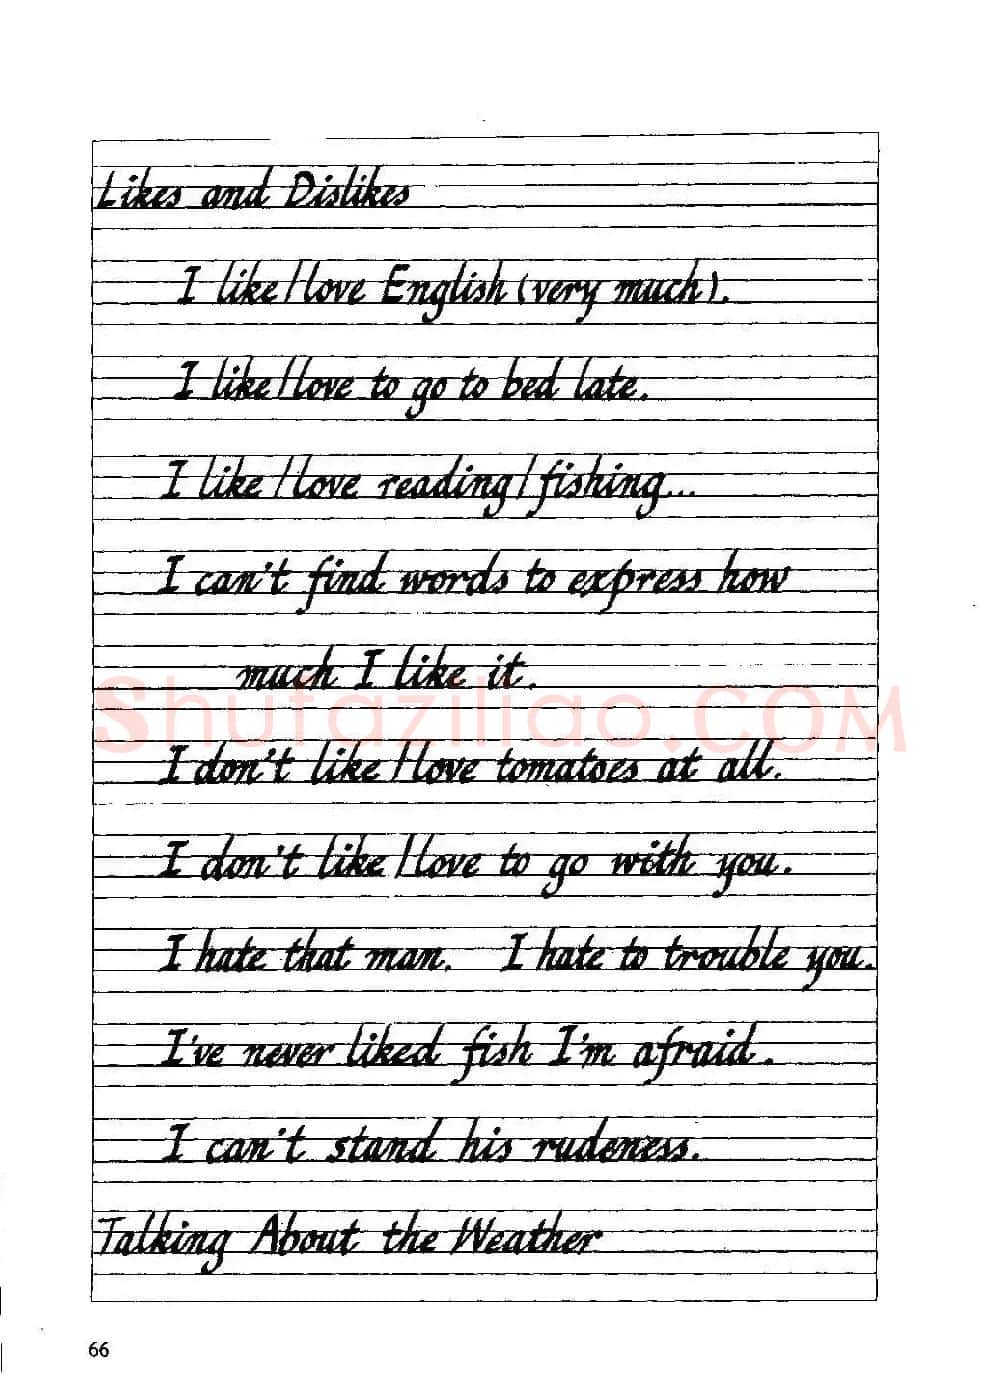 Likes and Dislikes
I like/love English (very much).
I like/love to go to bed late.
I like/love reading/fishing...
I can't find words to express how
much I like it.
Shufaziliao.COM
I don't like/love tomatoes at all.
I don't like/love to go with you.
I hate that man. I hate to trouble you.
I've never liked fish I'm afraid.
I can't stand his rudeness.
Talking About the Weather
66